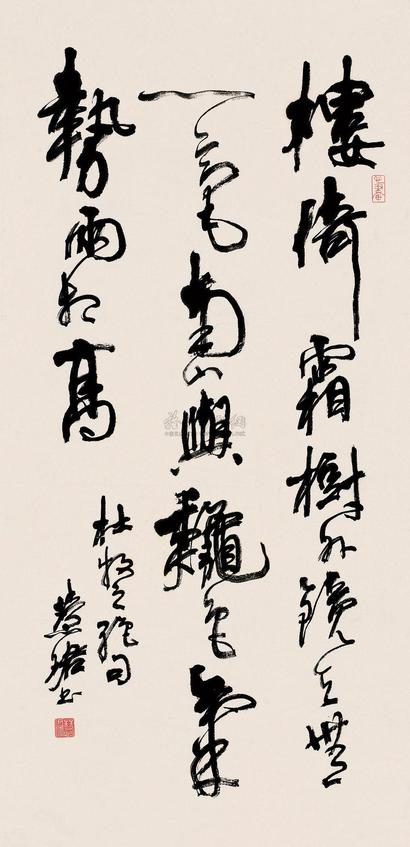 樓倚霜樹外鏡天無
一毫南山與龝色氣
勢兩相高
杜牧之絕句
慧珺書